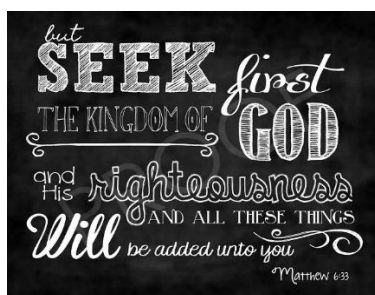 but
SEEK first
THE KINGDOM OF GOD
and His righteousness
AND ALL THESE THINGS
Will be added unto you
Matthew 6:33